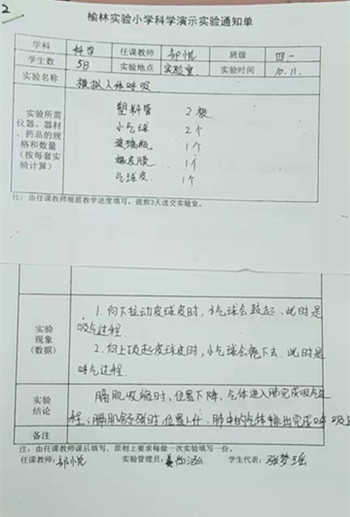 2
榆林实验小学科学演示实验通知单
学科 科学 任课教师 郭悦 班级 四一
学生数 58 实验地点 实验室 实验时间 10.11.
实验名称 模拟人体呼吸
实验所需仪器、器材、药品的规格和数量（按每套实验计算）
塑料管 2根
小气球 2个
玻璃瓶 1个
橡皮膜 1个
气球皮 1个
注：由任课教师根据教学进度填写，提前3天送交实验室。
实验现象（数据）
1.向下拉动皮球皮时，小气球会鼓起，此时是
吸气过程.
2.向上顶起皮球皮时，小气球会瘪下去，此时是
呼气过程.
实验结论
膈肌收缩时，位置下降，气体进入肺完成吸气过
程；膈肌舒张时，位置上升，肺中的气体排出完成呼
备注
注：由任课教师课后填写，原则上要求每做一次实验填写一份。
任课教师：郭悦 实验管理员： 学生代表：张梦瑶